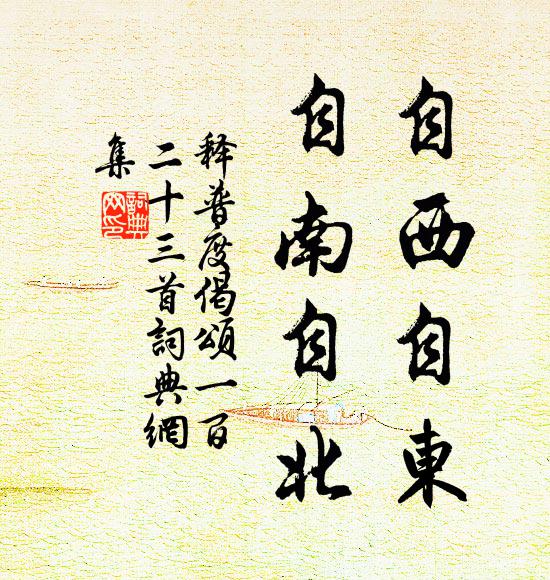 自西自東
自南自北
釋普度偈頌一百
二十三首詞典網
集
詞典
网印